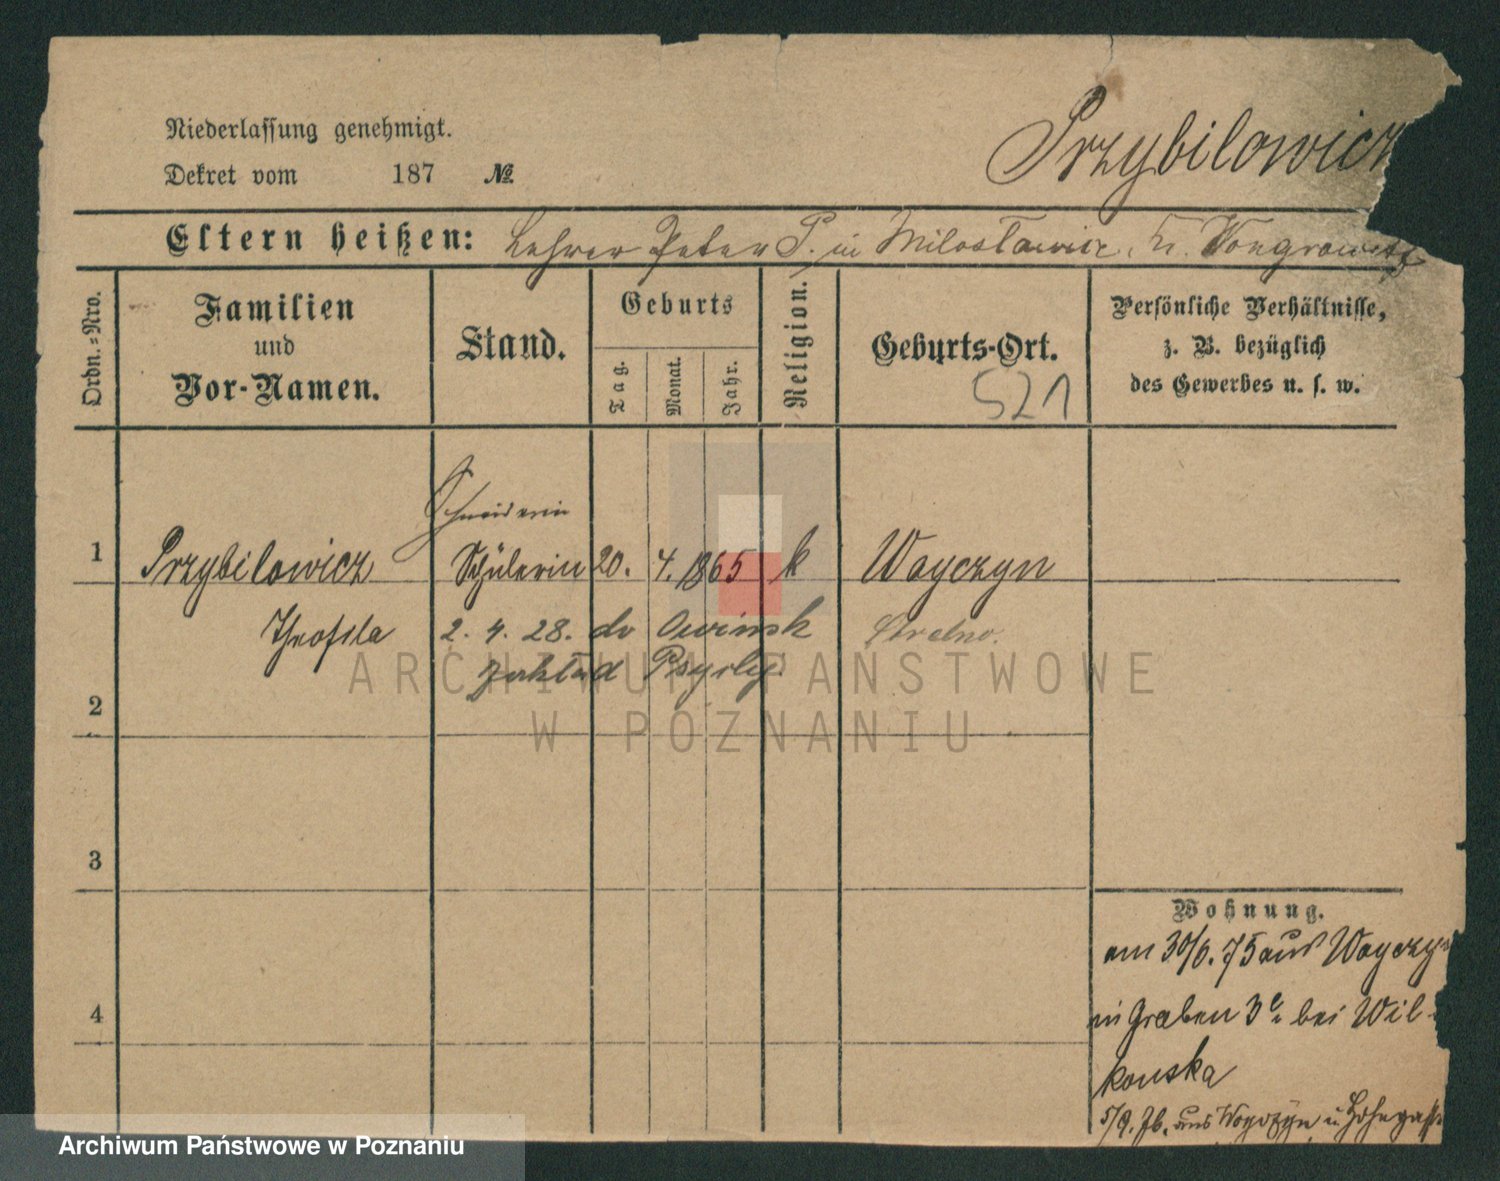 Niederlassung genehmigt.
Dekret vom 187 №
Przybilowicz
Eltern heißen: Lehrer Peter P. in Milosławice, Kr. Wongrowitz
Ordn.-Nro.
Familien
und
Vor-Namen.
Stand.
Geburts
Tag.
Monat.
Jahr.
Religion.
Geburts-Ort.
521
Persönliche Verhältnisse,
z. B. bezüglich
des Gewerbes u. s. w.
Schneiderin
1 Przybilowicz Schülerin 20. 4. 1865 k Woyczyn
Theofila 2. 4. 28. do Owinsk Strelno.
zakład Psych.
2
ARCHIWUM PAŃSTWOWE
W POZNANIU
3
Wohnung.
am 30/6. 75 aus Woyczyn
4
in Graben 3 bei Wil-
konska
5/9. 76. aus Woyczyn
Archiwum Państwowe w Poznaniu